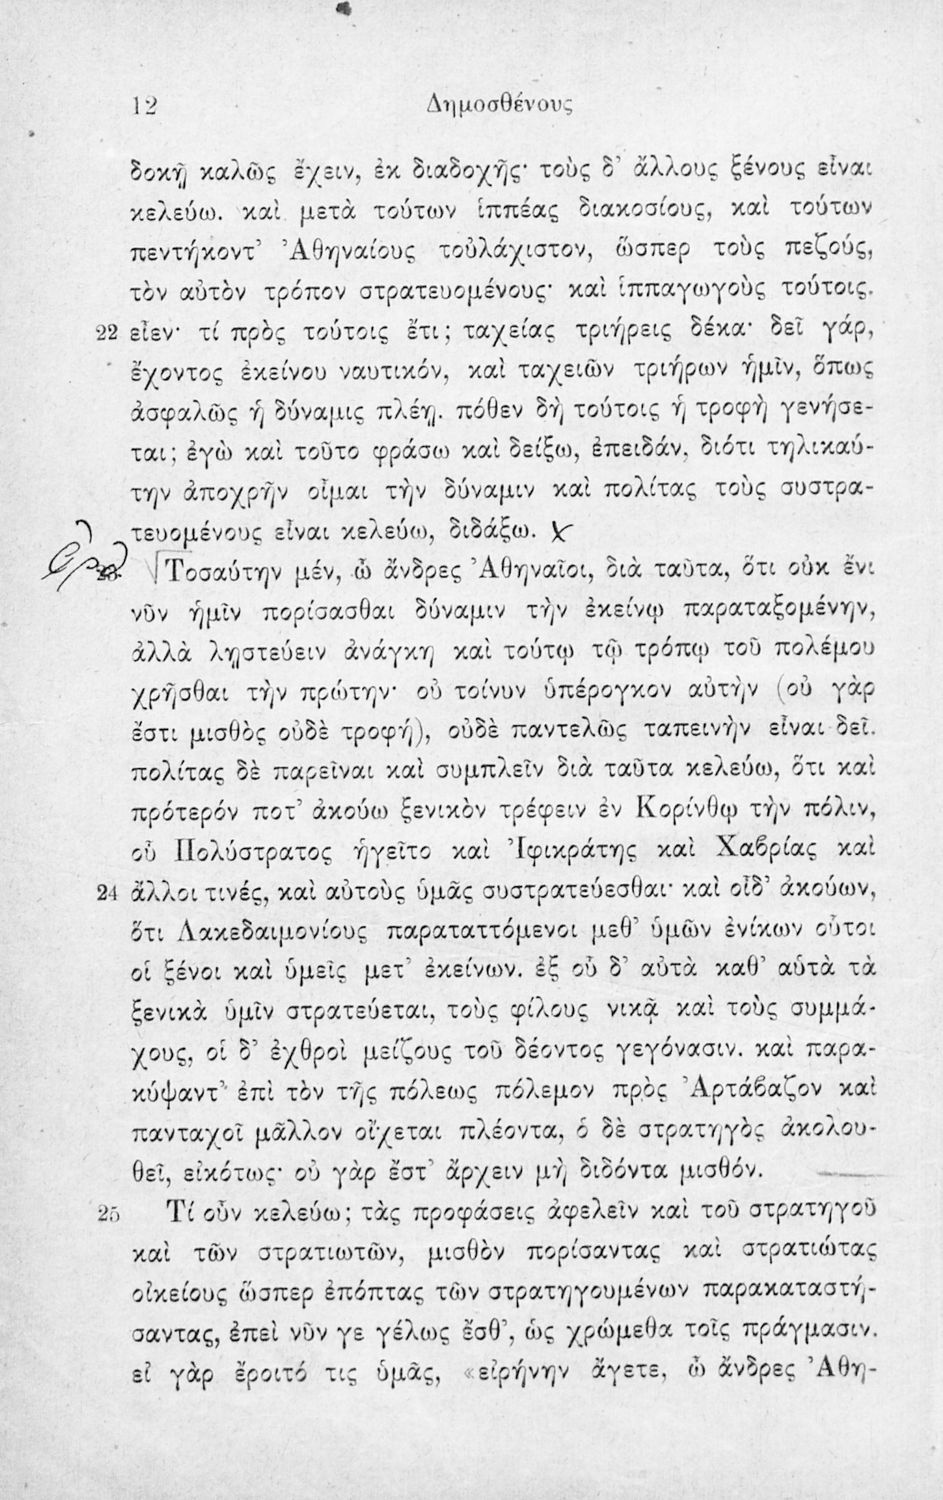 12 Δημοσθένους
δοκῇ καλῶς ἔχειν, ἐκ διαδοχῆς· τοὺς δ' ἄλλους ξένους εἶναι
κελεύω. καὶ μετὰ τούτων ἱππέας διακοσίους, καὶ τούτων
πεντήκοντ' Ἀθηναίους τοὐλάχιστον, ὥσπερ τοὺς πεζούς,
τὸν αὐτὸν τρόπον στρατευομένους· καὶ ἱππαγωγοὺς τούτοις.
22 εἶεν· τί πρὸς τούτοις ἔτι; ταχείας τριήρεις δέκα· δεῖ γάρ,
ἔχοντος ἐκείνου ναυτικόν, καὶ ταχειῶν τριήρων ἡμῖν, ὅπως
ἀσφαλῶς ἡ δύναμις πλέῃ. πόθεν δὴ τούτοις ἡ τροφὴ γενήσε-
ται; ἐγὼ καὶ τοῦτο φράσω καὶ δείξω, ἐπειδάν, διότι τηλικαύ-
την ἀποχρῆν οἶμαι τὴν δύναμιν καὶ πολίτας τοὺς συστρα-
τευομένους εἶναι κελεύω, διδάξω.
23 Τοσαύτην μέν, ὦ ἄνδρες Ἀθηναῖοι, διὰ ταῦτα, ὅτι οὐκ ἔνι
νῦν ἡμῖν πορίσασθαι δύναμιν τὴν ἐκείνῳ παραταξομένην,
ἀλλὰ λῃστεύειν ἀνάγκη καὶ τούτῳ τῷ τρόπῳ τοῦ πολέμου
χρῆσθαι τὴν πρώτην· οὐ τοίνυν ὑπέρογκον αὐτὴν (οὐ γὰρ
ἔστι μισθὸς οὐδὲ τροφή), οὐδὲ παντελῶς ταπεινὴν εἶναι δεῖ.
πολίτας δὲ παρεῖναι καὶ συμπλεῖν διὰ ταῦτα κελεύω, ὅτι καὶ
πρότερόν ποτ' ἀκούω ξενικὸν τρέφειν ἐν Κορίνθῳ τὴν πόλιν,
οὗ Πολύστρατος ἡγεῖτο καὶ Ἰφικράτης καὶ Χαβρίας καὶ
24 ἄλλοι τινές, καὶ αὐτοὺς ὑμᾶς συστρατεύεσθαι· καὶ οἶδ' ἀκούων,
ὅτι Λακεδαιμονίους παραταττόμενοι μεθ' ὑμῶν ἐνίκων οὗτοι
οἱ ξένοι καὶ ὑμεῖς μετ' ἐκείνων. ἐξ οὗ δ' αὐτὰ καθ' αὑτὰ τὰ
ξενικὰ ὑμῖν στρατεύεται, τοὺς φίλους νικᾷ καὶ τοὺς συμμά-
χους, οἱ δ' ἐχθροὶ μείζους τοῦ δέοντος γεγόνασιν. καὶ παρα-
κύψαντ' ἐπὶ τὸν τῆς πόλεως πόλεμον πρὸς Ἀρτάβαζον καὶ
πανταχοῖ μᾶλλον οἴχεται πλέοντα, ὁ δὲ στρατηγὸς ἀκολου-
θεῖ, εἰκότως· οὐ γὰρ ἔστ' ἄρχειν μὴ διδόντα μισθόν.
25 Τί οὖν κελεύω; τὰς προφάσεις ἀφελεῖν καὶ τοῦ στρατηγοῦ
καὶ τῶν στρατιωτῶν, μισθὸν πορίσαντας καὶ στρατιώτας
οἰκείους ὥσπερ ἐπόπτας τῶν στρατηγουμένων παρακαταστή-
σαντας, ἐπεὶ νῦν γε γέλως ἔσθ', ὡς χρώμεθα τοῖς πράγμασιν.
εἰ γὰρ ἔροιτό τις ὑμᾶς, «εἰρήνην ἄγετε, ὦ ἄνδρες Ἀθη-